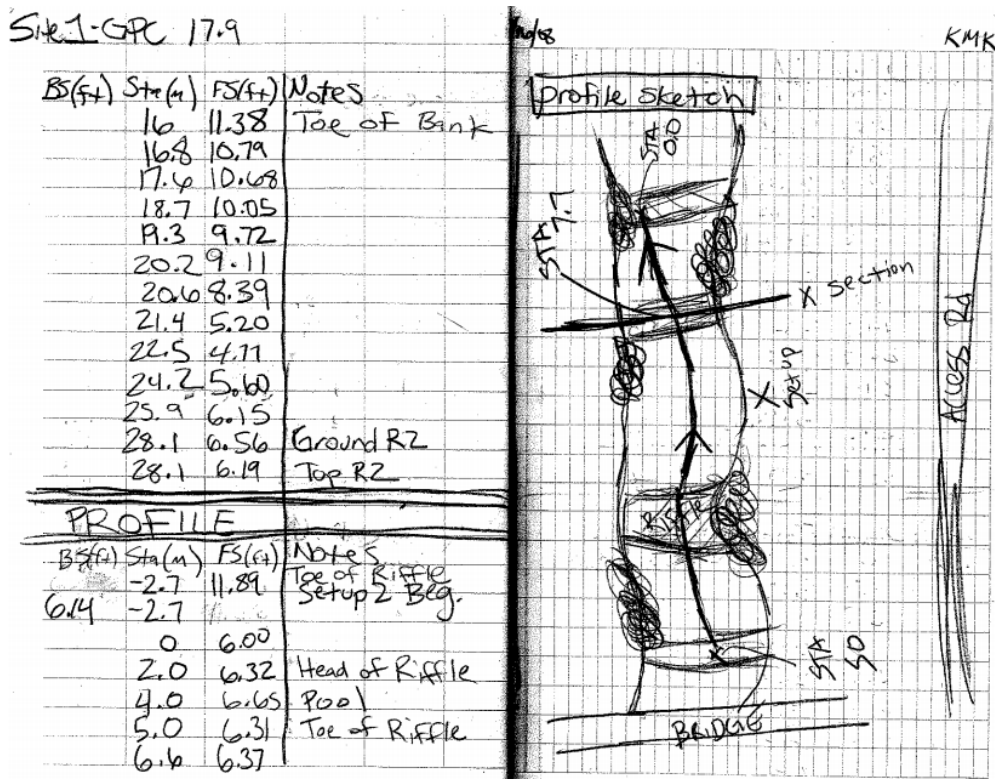 Site 1-GPC 17.9
BS(ft) Sta(m) FS(ft) Notes
16 11.38 Toe of Bank
16.8 10.79
17.6 10.68
18.7 10.05
19.3 9.72
20.2 9.11
20.6 8.39
21.4 5.20
22.5 4.77
24.2 5.60
25.9 6.15
28.1 6.56 Ground R2
28.1 6.19 Top R2
PROFILE
BS(ft) Sta(m) FS(ft) Notes
-2.7 11.89 Toe of Riffle
Setup 2 Beg.
6.14 -2.7
0 6.00
2.0 6.32 Head of Riffle
4.0 6.65 Pool
5.0 6.31 Toe of Riffle
6.6 6.37
KMK
profile sketch
STA
0.0
STA
7.7
X section
X
Setup
Access Rd
Riffle
STA
50
BRIDGE